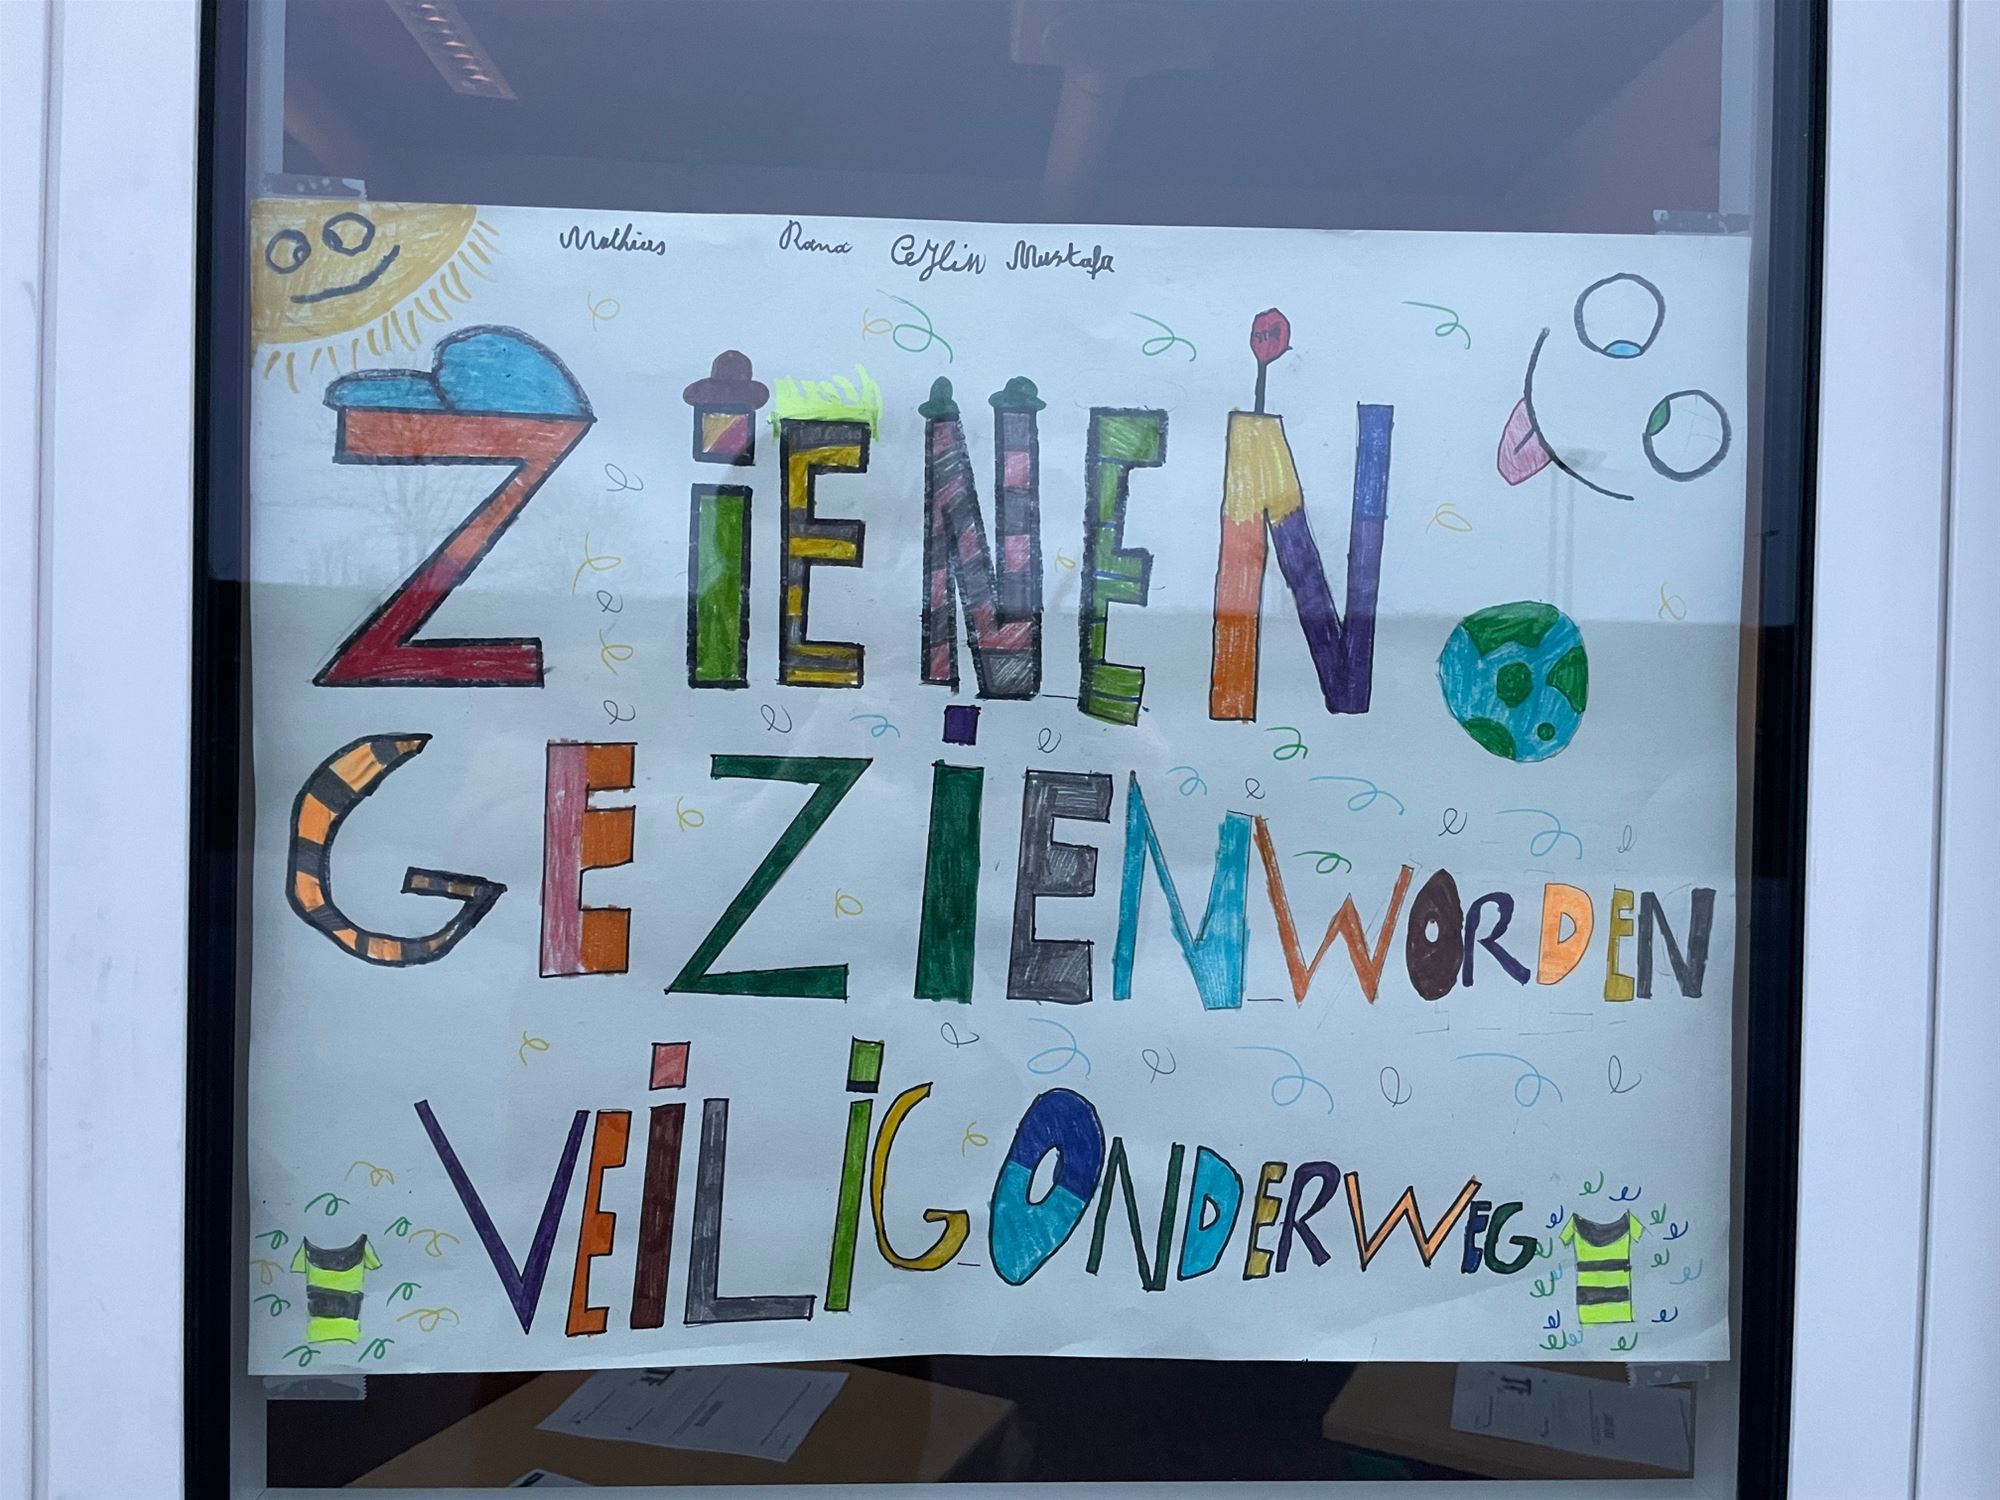 Mathias Rana Ceylin Mustafa
STOP
ZiENEN
GEZiEN WORDEN
VEiLiG ONDERWEG